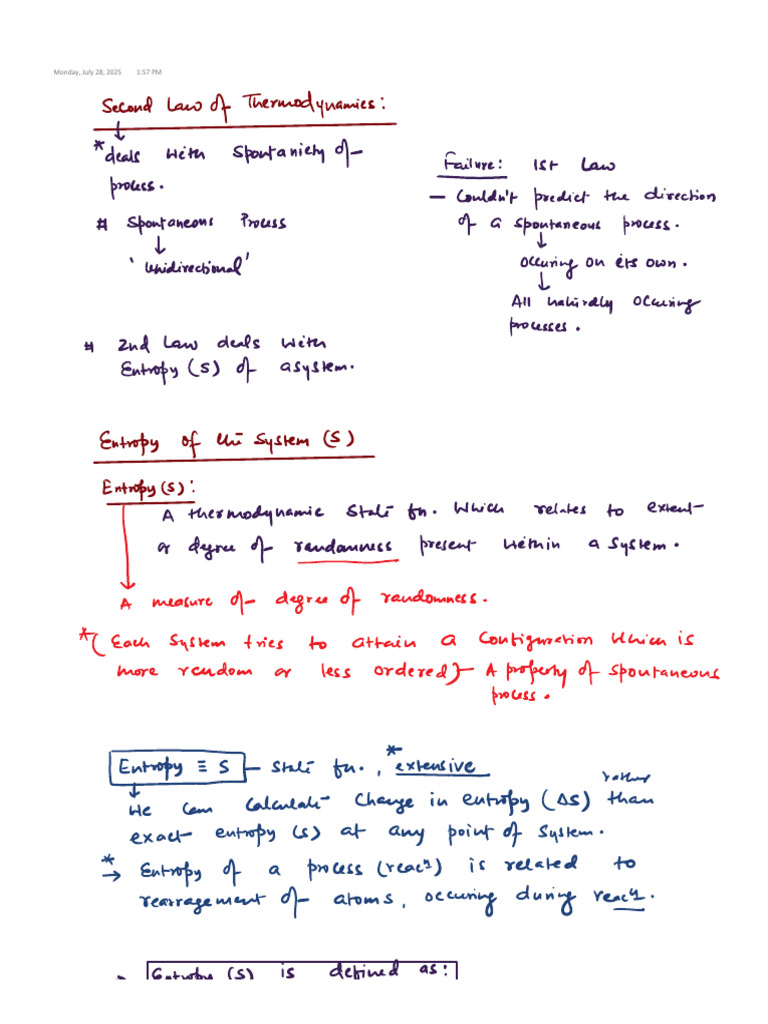 Monday, July 28, 2025 1:57 PM
Second Law of Thermodynamics:
* deals with Spontaniety of
process.
# Spontaneous Process
↓
'Unidirectional'
Failure: 1st Law
— Couldn't predict the direction
of a spontaneous process.
↓
occuring on its own.
↓
All naturally occuring
processes.
# 2nd Law deals with
Entropy (S) of a system.
Entropy of the System (S)
Entropy (S):
A thermodynamic state fn. which relates to extent
or degree of randomness present within a system.
A measure of degree of randomness.
* (Each system tries to attain a configuration which is
more random or less ordered) — A property of spontaneous
process.
Entropy ≡ S — state fn., * extensive
We can calculate change in entropy (ΔS) rather than
exact entropy (s) at any point of system.
* → Entropy of a process (reacⁿ) is related to
rearragement of atoms, occuring during reacⁿ.
- Entropy (S) is defined as: